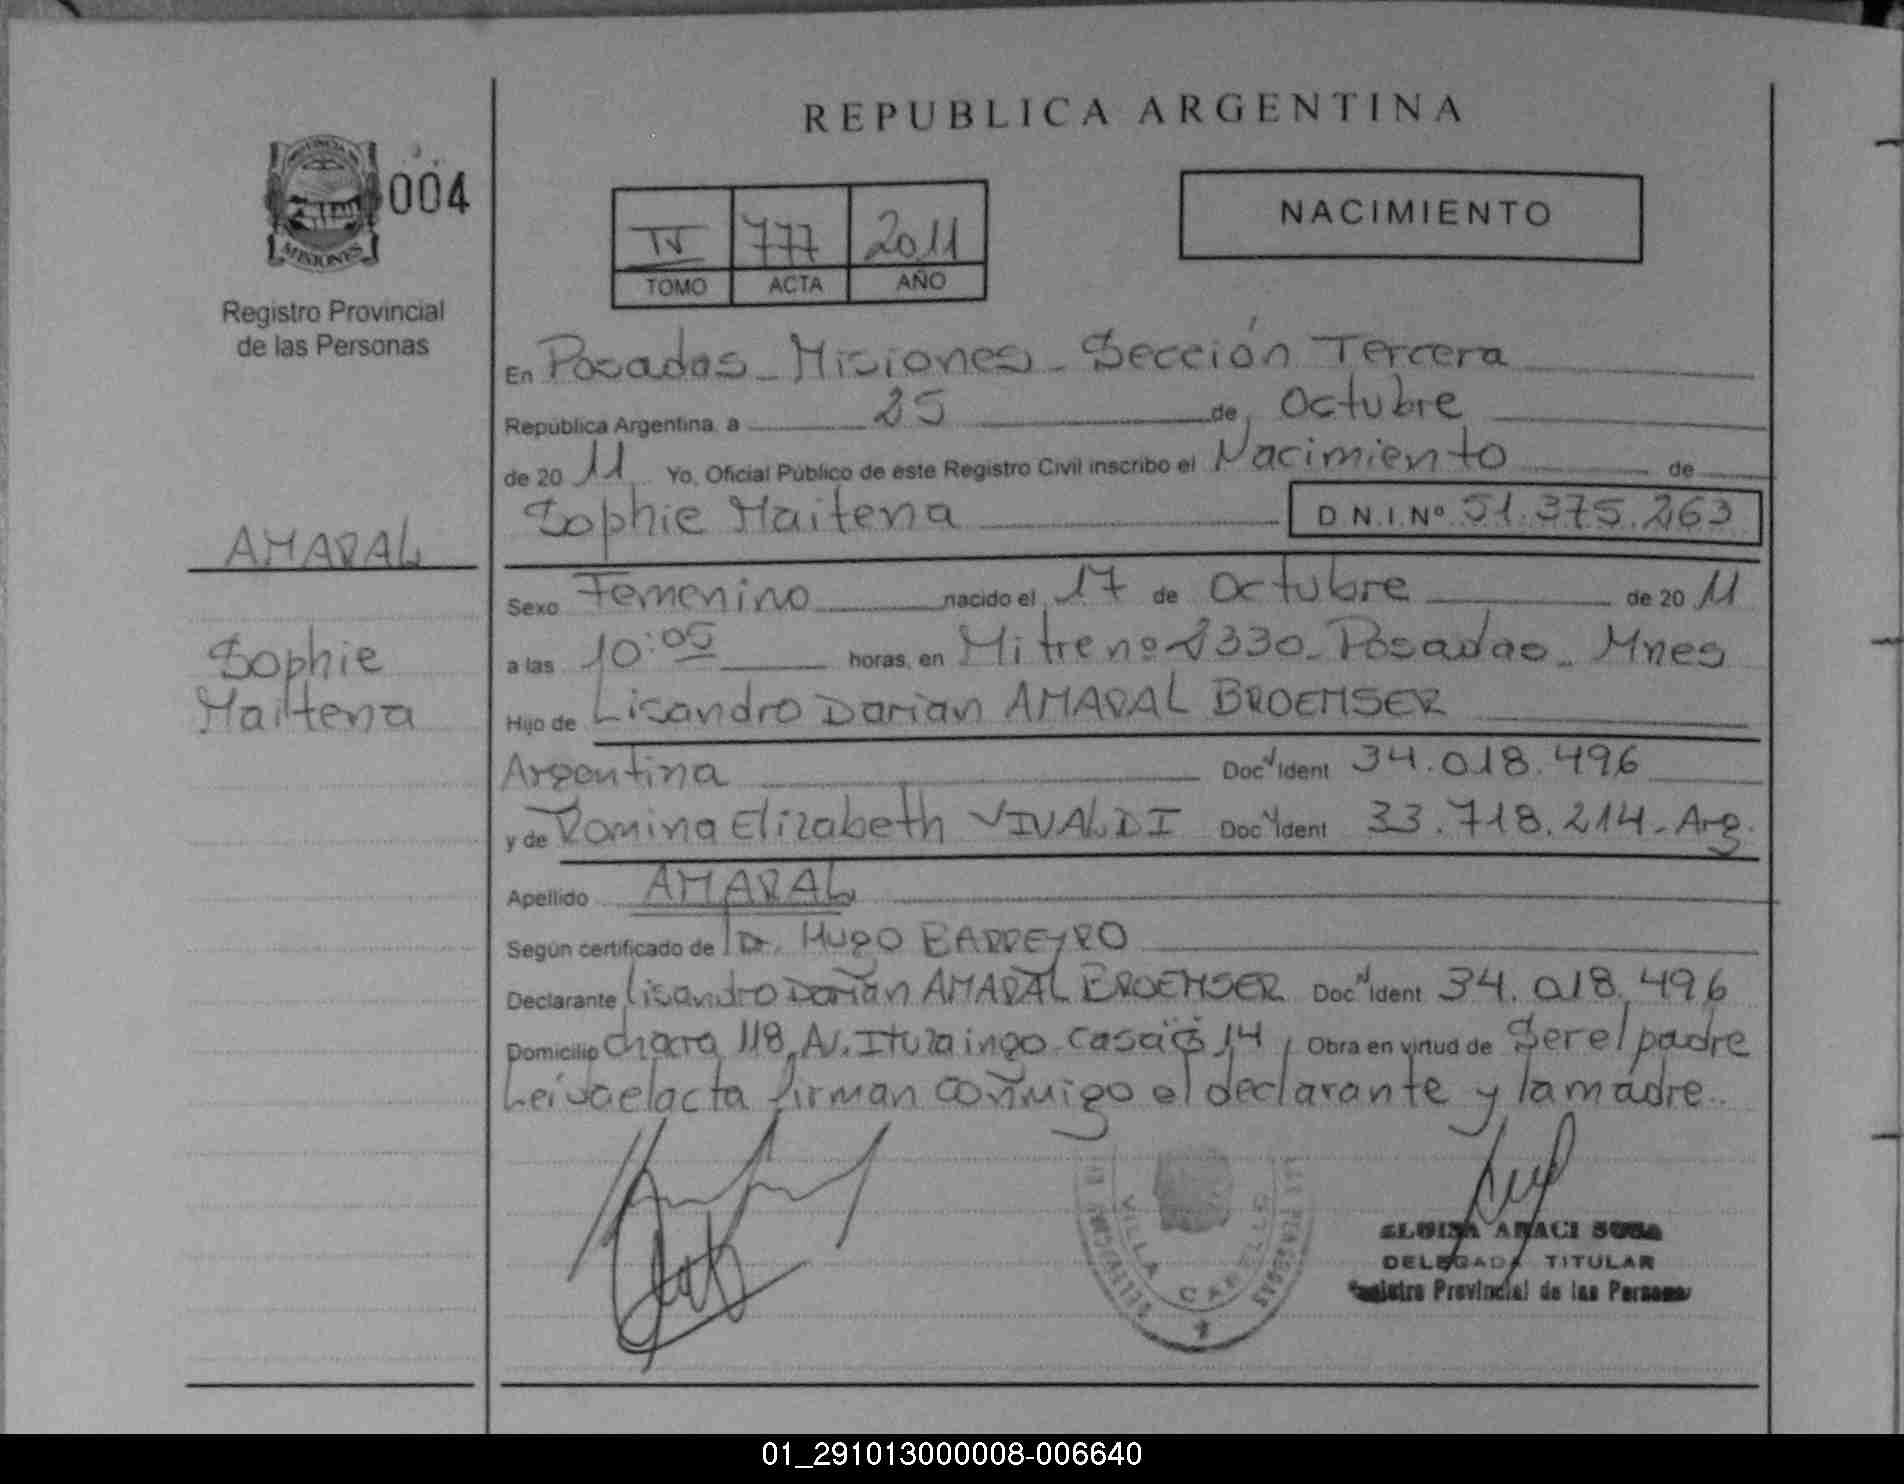 REPUBLICA ARGENTINA
PROVINCIA DE
MISIONES
004
Registro Provincial
de las Personas
IV 777 2011
TOMO ACTA AÑO
NACIMIENTO
En Posadas - Misiones - Sección Tercera
República Argentina, a 25 de Octubre
de 2011 Yo, Oficial Público de este Registro Civil inscribo el Nacimiento de
Sophie Maitena D.N.I. Nº 51.375.263
AMARAL
Sophie
Maitena
Sexo Femenino nacido el 17 de Octubre de 2011
a las 10:05 horas, en Mitre nº 2330 - Posadas - Mnes
Hijo de Lisandro Darian AMARAL BROEMSER
Argentina Doc Ident 34.018.496
y de Romina Elizabeth VIVALDI Doc Ident 33.718.214 - Arg.
Apellido AMARAL
Según certificado de Dr. Hugo BARREYRO
Declarante Lisandro Darian AMARAL BROEMSER Doc Ident 34.018.496
Domicilio chacra 118, Av. Ituzaingo casa 14 Obra en virtud de Ser el padre
Leída el acta firman conmigo el declarante y la madre.
VILLA CABELLO
DELEGADA TITULAR
Registro Provincial de las Personas
01_291013000008-006640